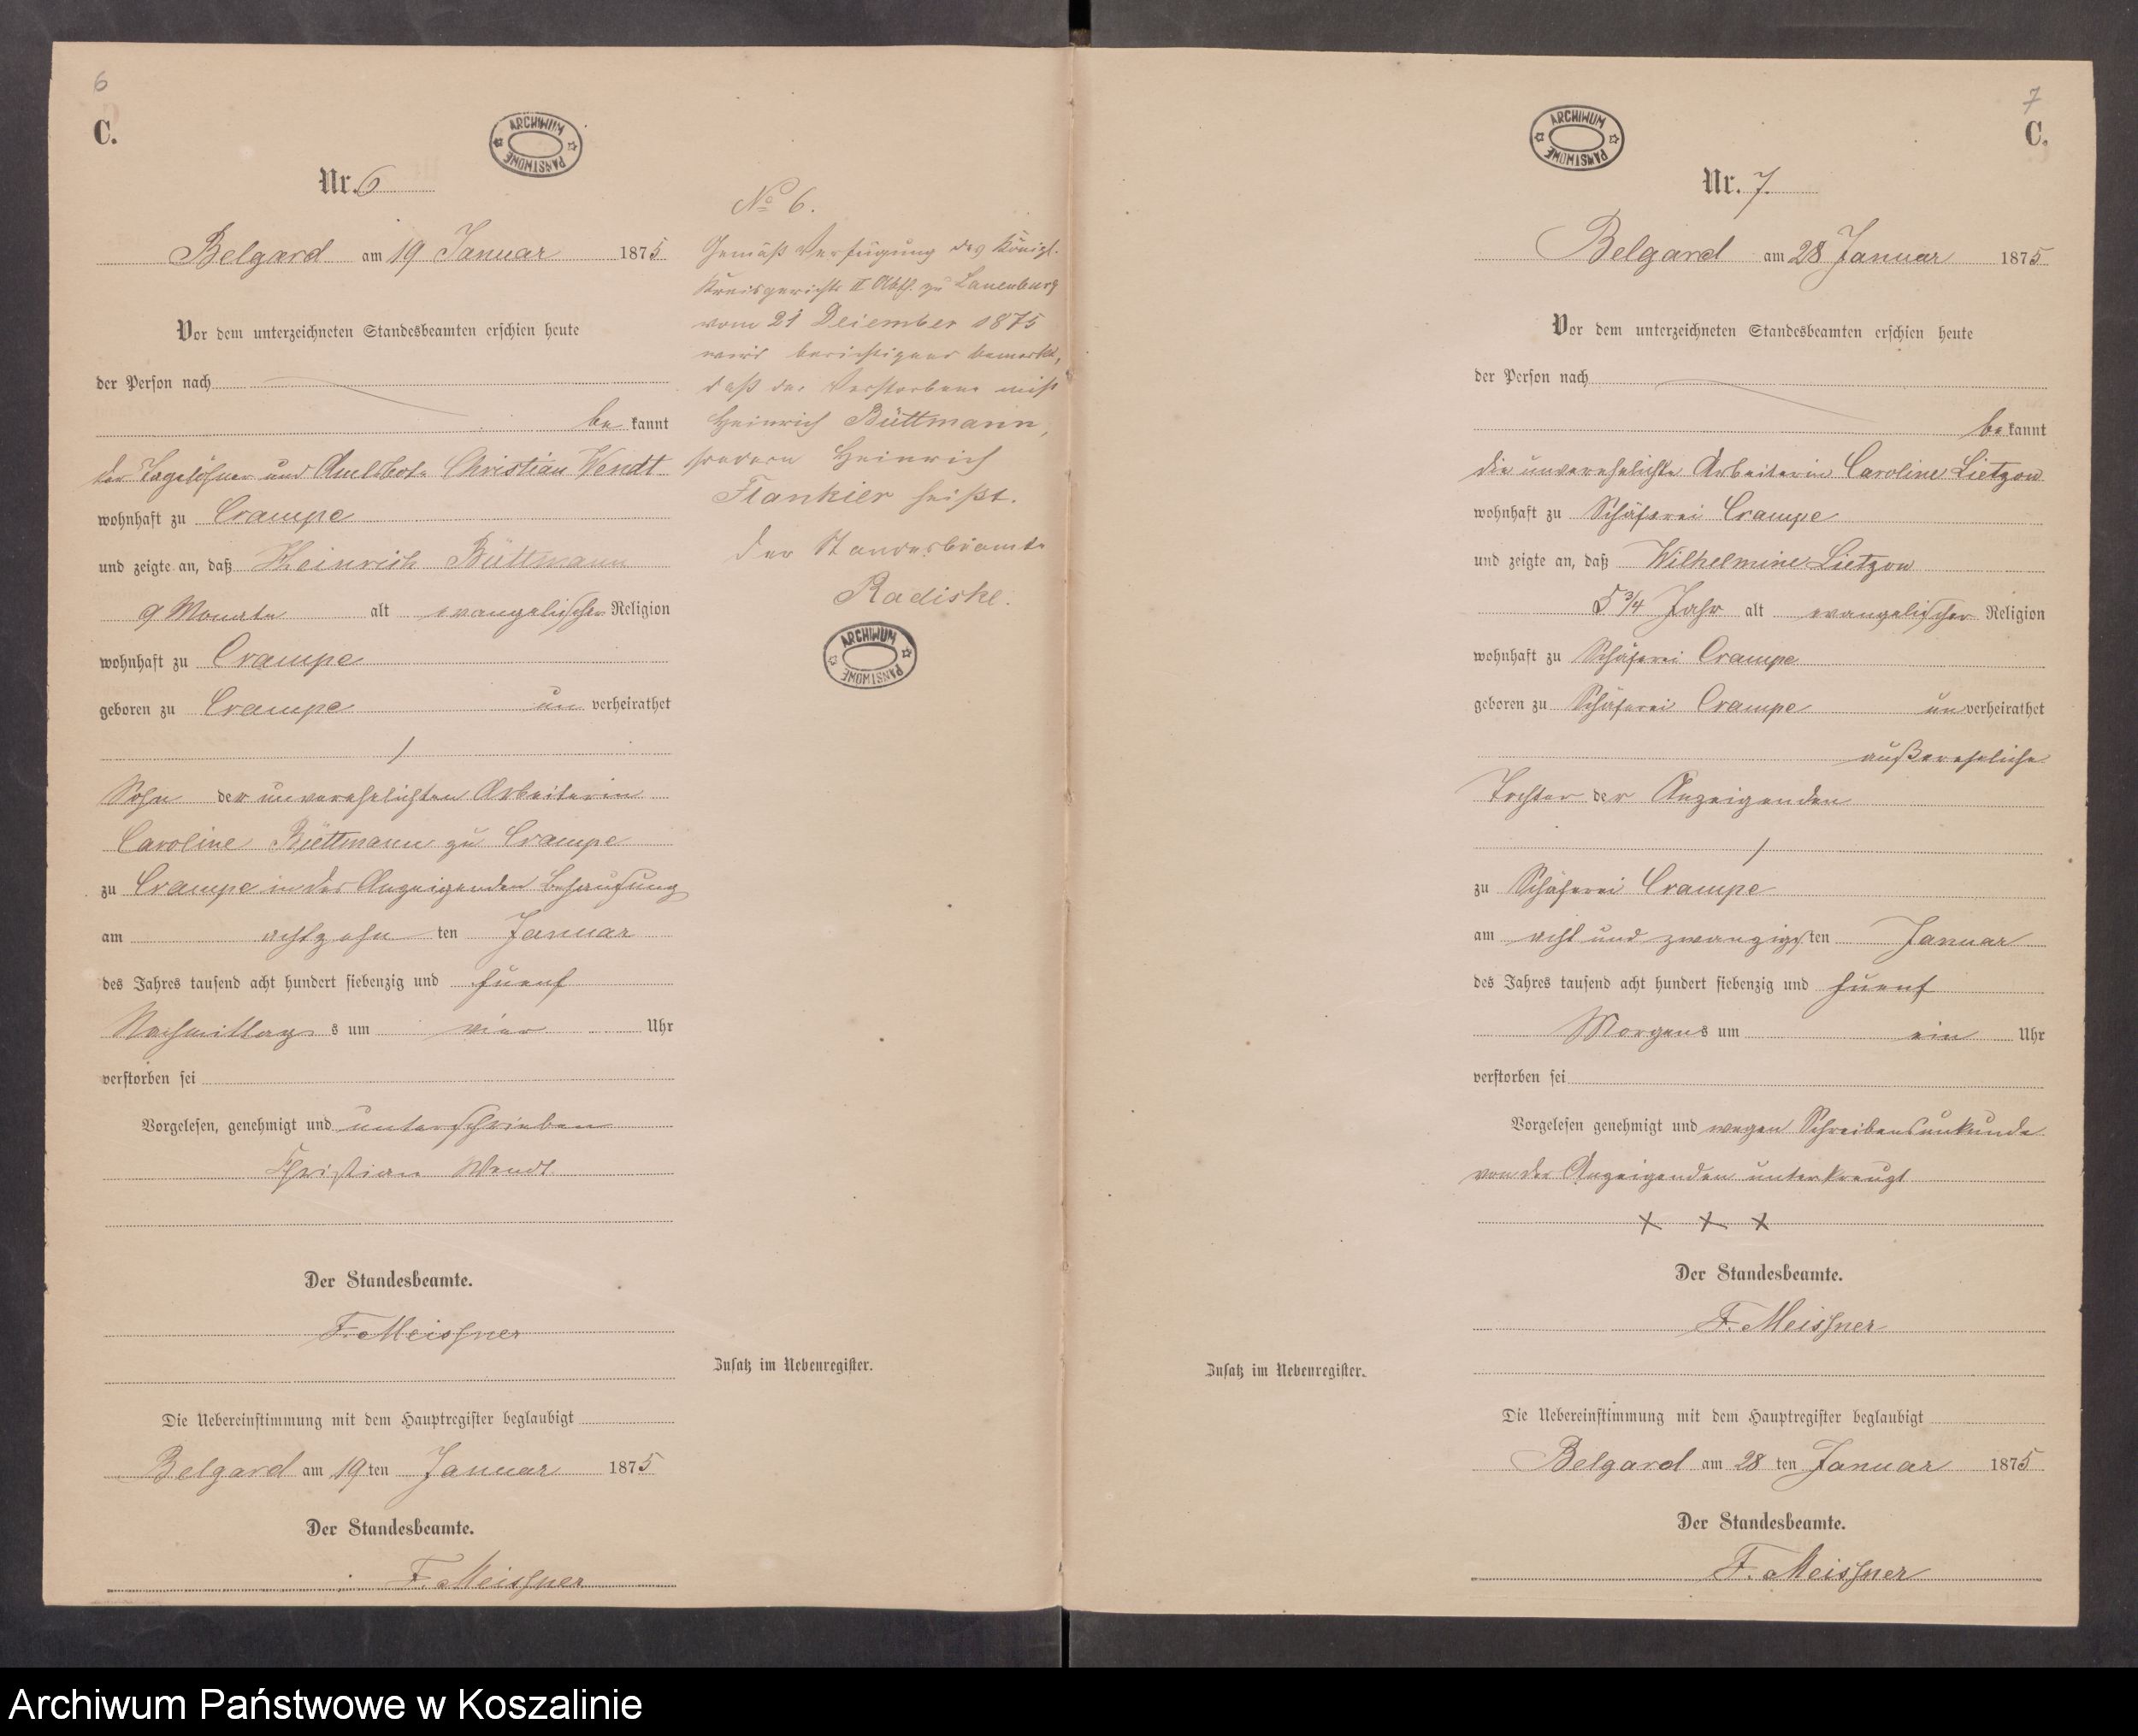 6
C.
ARCHIWUM PAŃSTWOWE
Nr. 6
Belgard am 19 Januar 1875
Vor dem unterzeichneten Standesbeamten erschien heute
der Person nach
be kannt
der Tagelöhner und Amtsbote Christian Wendt
wohnhaft zu Crampe
und zeigte an, daß Heinrich Büttmann
9 Monate alt evangelischer Religion
wohnhaft zu Crampe
geboren zu Crampe un verheirathet
/
Sohn der unverehelichten Arbeiterin
Caroline Büttmann zu Crampe
zu Crampe in des Anzeigenden Behausung
am achtzehn ten Januar
des Jahres tausend acht hundert siebenzig und fuenf
Nachmittag s um vier Uhr
verstorben sei
Vorgelesen, genehmigt und unterschrieben
Christian Wendt
Der Standesbeamte.
F. Meissner
Die Uebereinstimmung mit dem Hauptregister beglaubigt
Belgard am 19 ten Januar 1875
Der Standesbeamte.
F. Meissner
No 6.
Gemäß Verfügung des Königl.
Kreisgerichts II Abth. zu Lauenburg
vom 21 Dezember 1875
wird berichtigend bemerkt,
daß der Verstorbene nicht
Heinrich Büttmann,
sondern Heinrich
Flankier heißt.
Der Standesbeamte
Radiske.
ARCHIWUM PAŃSTWOWE
Zusatz im Nebenregister.
7
C.
ARCHIWUM PAŃSTWOWE
Nr. 7.
Belgard am 28 Januar 1875
Vor dem unterzeichneten Standesbeamten erschien heute
der Person nach
be kannt
die unverehelichte Arbeiterin Caroline Lietzow
wohnhaft zu Schäferei Crampe
und zeigte an, daß Wilhelmine Lietzow
5 3/4 Jahr alt evangelischer Religion
wohnhaft zu Schäferei Crampe
geboren zu Schäferei Crampe un verheirathet
außereheliche
Tochter der Anzeigenden
/
zu Schäferei Crampe
am acht und zwanzigsten Januar
des Jahres tausend acht hundert siebenzig und fuenf
Morgens um ein Uhr
verstorben sei
Vorgelesen genehmigt und wegen Schreibensunkunde
von der Anzeigenden unterkreuzt
x x x
Der Standesbeamte.
F. Meissner
Zusatz im Nebenregister.
Die Uebereinstimmung mit dem Hauptregister beglaubigt
Belgard am 28 ten Januar 1875
Der Standesbeamte.
F. Meissner
Archiwum Państwowe w Koszalinie